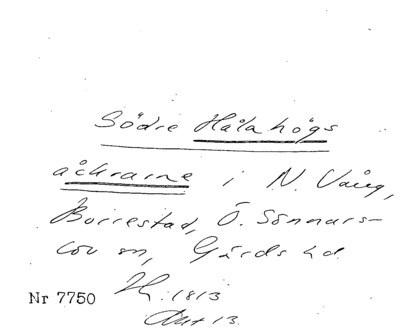 Södre Hålahögs
åkrarne i N. Vång,
Borrestad, Ö. Sönnars-
löv sn, Gärds hd.
Nr 7750 Sk. 1813
Akt 13.